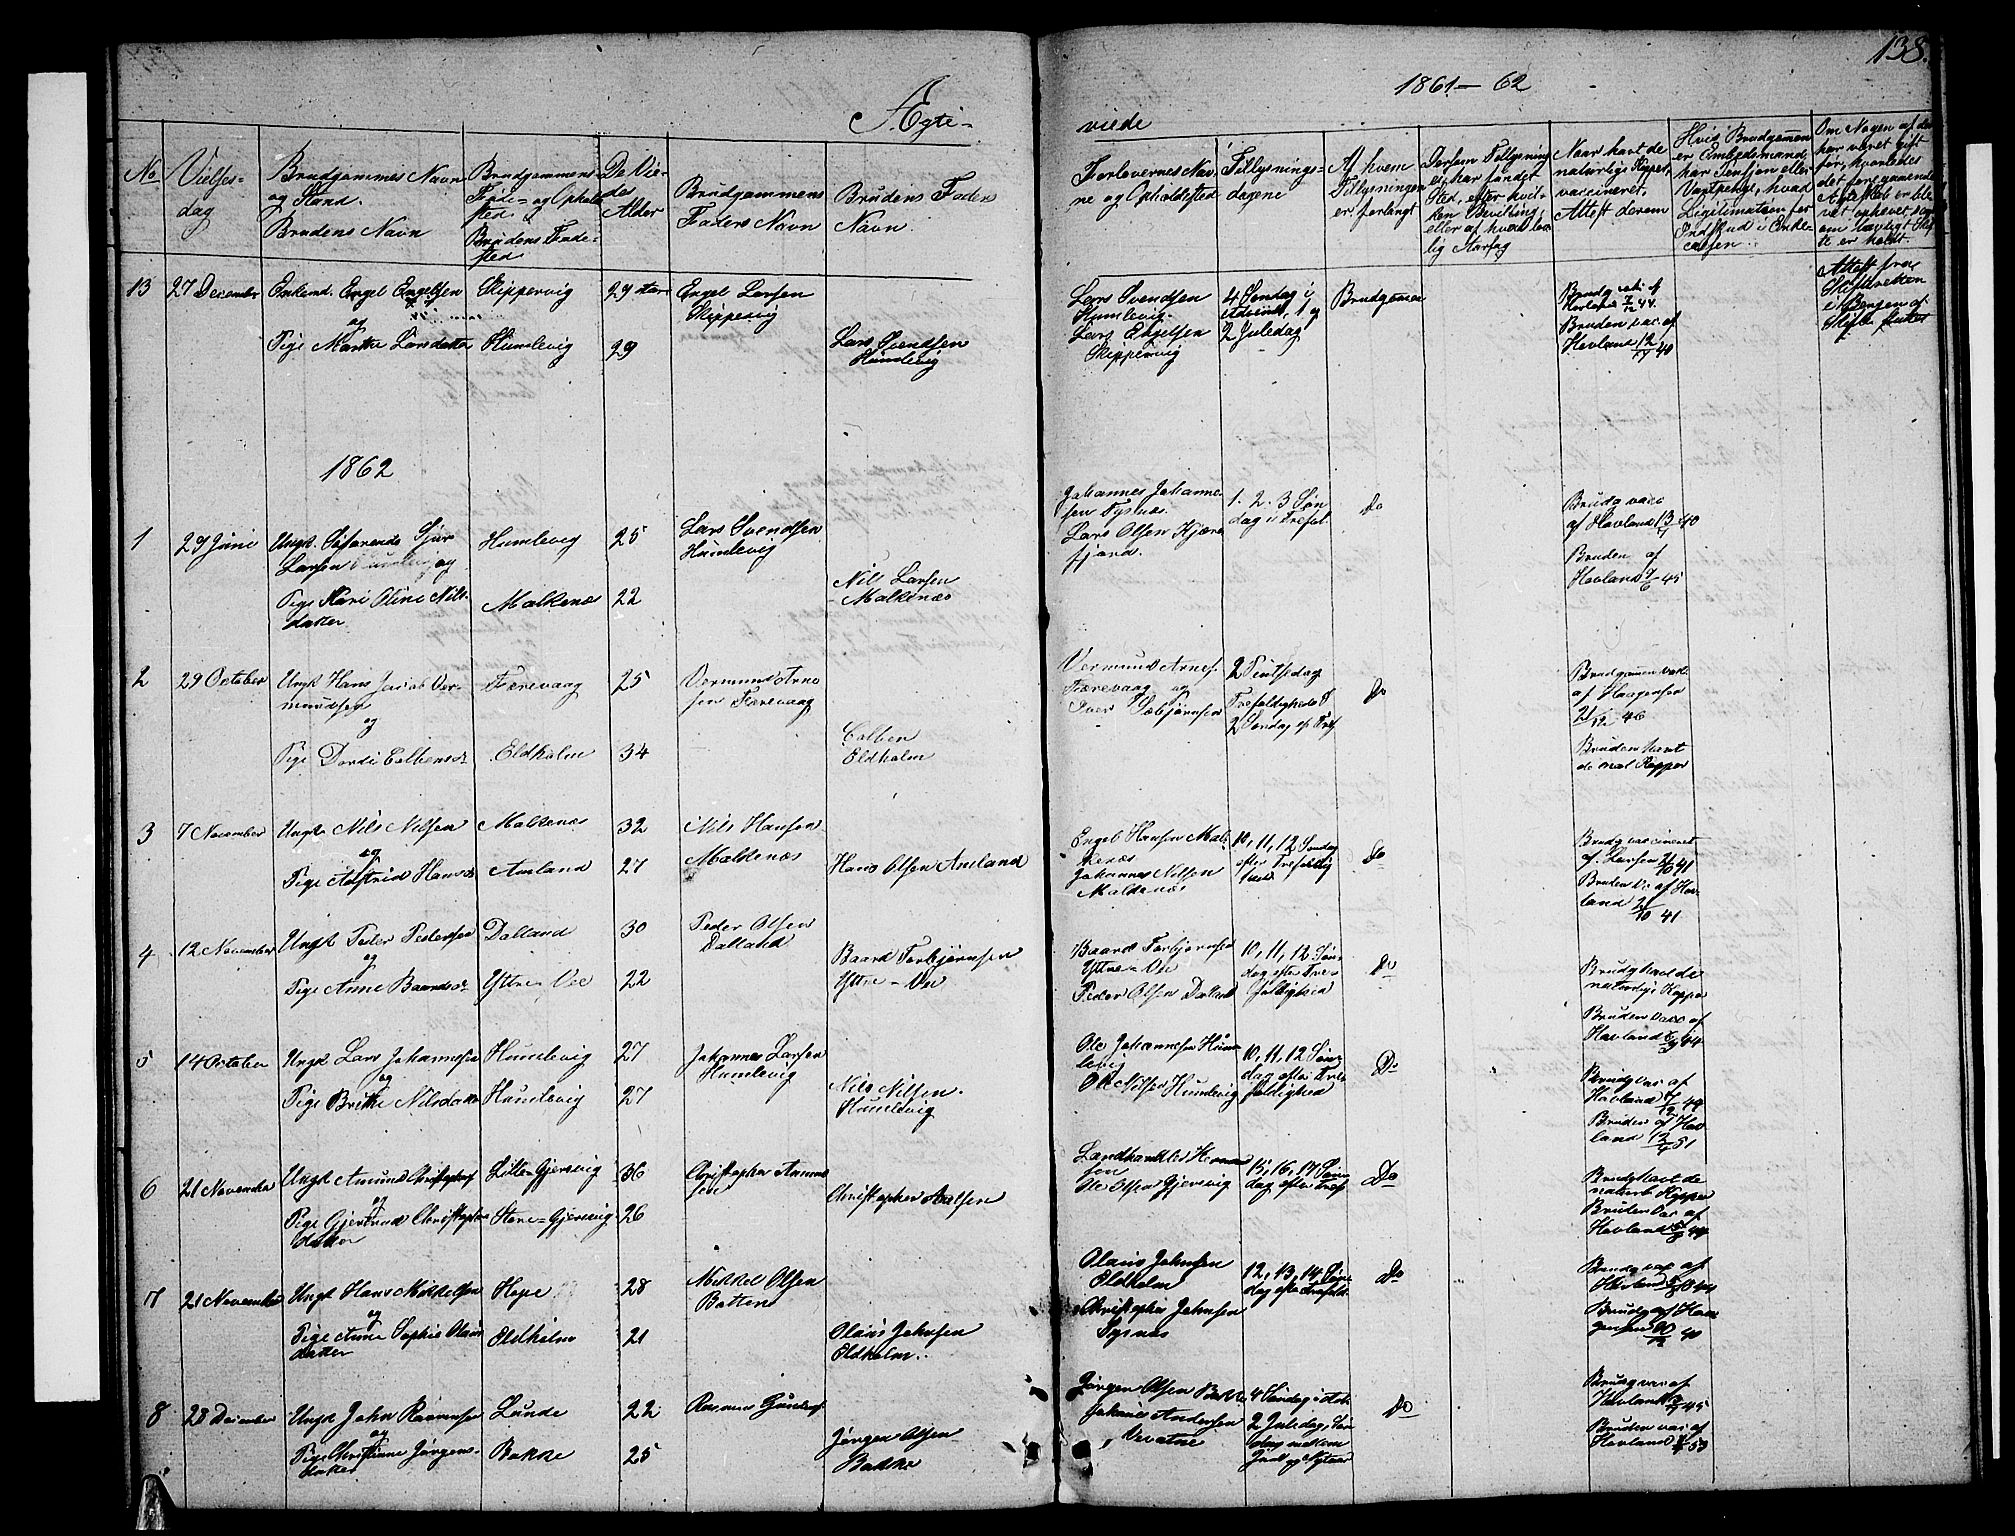 138.
1861 – 62
Ægte-
viede
No
Vielses-
dag
Brudgommes Navn
og Stand.
Brudens Navn
Brudgommens
Føde- og Opholds
sted.
Brudens Føde-
sted
De Vie-
des
Alder
Brudgommens
Faders Navn
Brudens Faders
Navn.
Forlovernes Nav-
ne og Opholdssted
Tillysnings-
dagene
Af hvem
Tillysningen
er forlangt
Dersom Tillysning
ei har fundet
Sted, efter hvil-
ken Bevilling,
eller af hvad lov-
lig Aarsag
Naar havt de
naturlige Kopper,
vaccineret.
Attest derom
Hvis Brudgommen
er Embedsmand
har Pension eller
Vartpenge, hvad
Legitimation for
Indskud i Enke-
cassen.
Om Nogen af dem
har været gift
før, hvorledes
det foregaaende
Ægteskab er ble-
vet ophevet, og
om lovligt Skif-
te er holdt.
13
27 December
Enkemd. Engel Engelsen
og
Pige Martha Larsdatter
Skippervig
Humlevig
29
29
Engel Larsen
Skippervig
Lars Svendsen
Humlevig
Lars Svendsen
Humlevig.
Lars Engelsen
Skippervig
4 Søndag i
Advent, 1 og
2 Juledag
Brudgommen
Brudg vac. af
Havland 7/2 44.
Bruden vac af
Havland 12/11 40
Attest fra
Skifteretten
i Bergen af
Skifte sluttet
1862
1
29 Juni
Ungk. Søfarende Sjur
Larsen Humlevig
Pige Kari Oline Nils-
datter
Humlevig
Malkenæs
25
22
Lars Svendsen
Humlevig
Nils Larsen
Malkenæs
Johannes Johanne-
sen Tysnæs.
Lars Olsen Kjære
fjord.
1. 2. 3 Søn
dag i Trefol.
Do
Brudg vacc
af Havland 13/11 40
Bruden af
Havland 9/6 45
2
29 October
Ungk Hans Jacob Ver-
mundsen
og
Pige Dorde Colbensd-
Færevaag
Eldholm
25
34
Vermund Arne
sen Færevaag
Colben
Eldholm
Vermund Arnes.
Færevaag og
Iver Sæbjørnsen
2 Pintsedag
Trefoldigheds S
2 Søndag ef. Tref
Do
Brudgommen vac.
af Haagensen
21/12 46
Bruden havt
de nat Kopper
3
7 November
Ungk Nils Nilsen
og
Pige Astrid Hansd
Malkenæs
Amland
32
27
Nils Hansen
Malkenæs
Hans Olsen Amland
Engel Hansen Mal-
kenæs
Johannes Nilsen
Malkenæs
10, 11, 12 Søndag
efter Trefoldig
hed
Do
Brudg vaccineret
af Larsen 21/10 41
Bruden Do af Hav-
land 21/10 41
4
12 November
Ungk Peder Pedersen
og
Pige Anne Baardsd-
Dalland
Yttre-Vee
30
22
Peder Olsen
Dalland
Baard Torbjørnsen
Yttre-Vee
Baard Torbjørnsen
Yttre-Vee
Peder Olsen Dalland
10, 11, 12 Søn-
dag efter Tre-
foldighed
Do
Brudg havt de
naturlige Kopper
Bruden vacc af
Havland 44
5
14 October
Ungk Lars Johannesen
og
Pige Brithe Nilsdatter
Humlevig
Humlevig
27
27
Johannes Larsen
Humlevig
Nils Nilsen
Humlevig
Ole Johannesen Hum
levig
Ole Nilsen Humlevig
10, 11, 12 Søn-
dag efter Tre-
foldighed
Do
Brudg vac af
Havland 49
Bruden af Hav
land 51
6
21 November
Ungk Amund Christophers
og
Pige Gjertrud Christopher
datter
Lille-Gjersvig
Store-Gjersvig
36
26
Christopher Amund
sen
Christopher Axelsen
Landhandler
sen
Ole Olsen Gjersvig
15, 16, 17 Søn
dag efter Tref
Do
Brudg havt de
naturl Kopper
Bruden vac af
Havland 49
7
21 November
Ungk Hans Mikkelsen
og
Pige Anne Sophie Olaus
datter
Hope
Eldholm
28
21
Mikkel Olsen
Botten
Olaus Johnsen
Eldholm.
Olaus Johnsen
Eldholm
Christopher Johnsen
Tysnæs
12, 13, 14 Søn
dag efter Trefold
Do
Brudg vac af
Havland
Brudg af Haa
gensen 40
8
28 December
Ungk John Rasmussen
og
Pige Christine Jørgens-
datter
Lunde
Bakke
22
25
Rasmus
Jørgen Olsen
Bakke
Jørgen Olsen Bakke
Johannes Andersen
4 Søndag i Adv
2 Juledag, Søn
dag mellem
Juul og Nytaar
Do
Brudg vac af
Havland 45
Bruden vac af
Havland 53